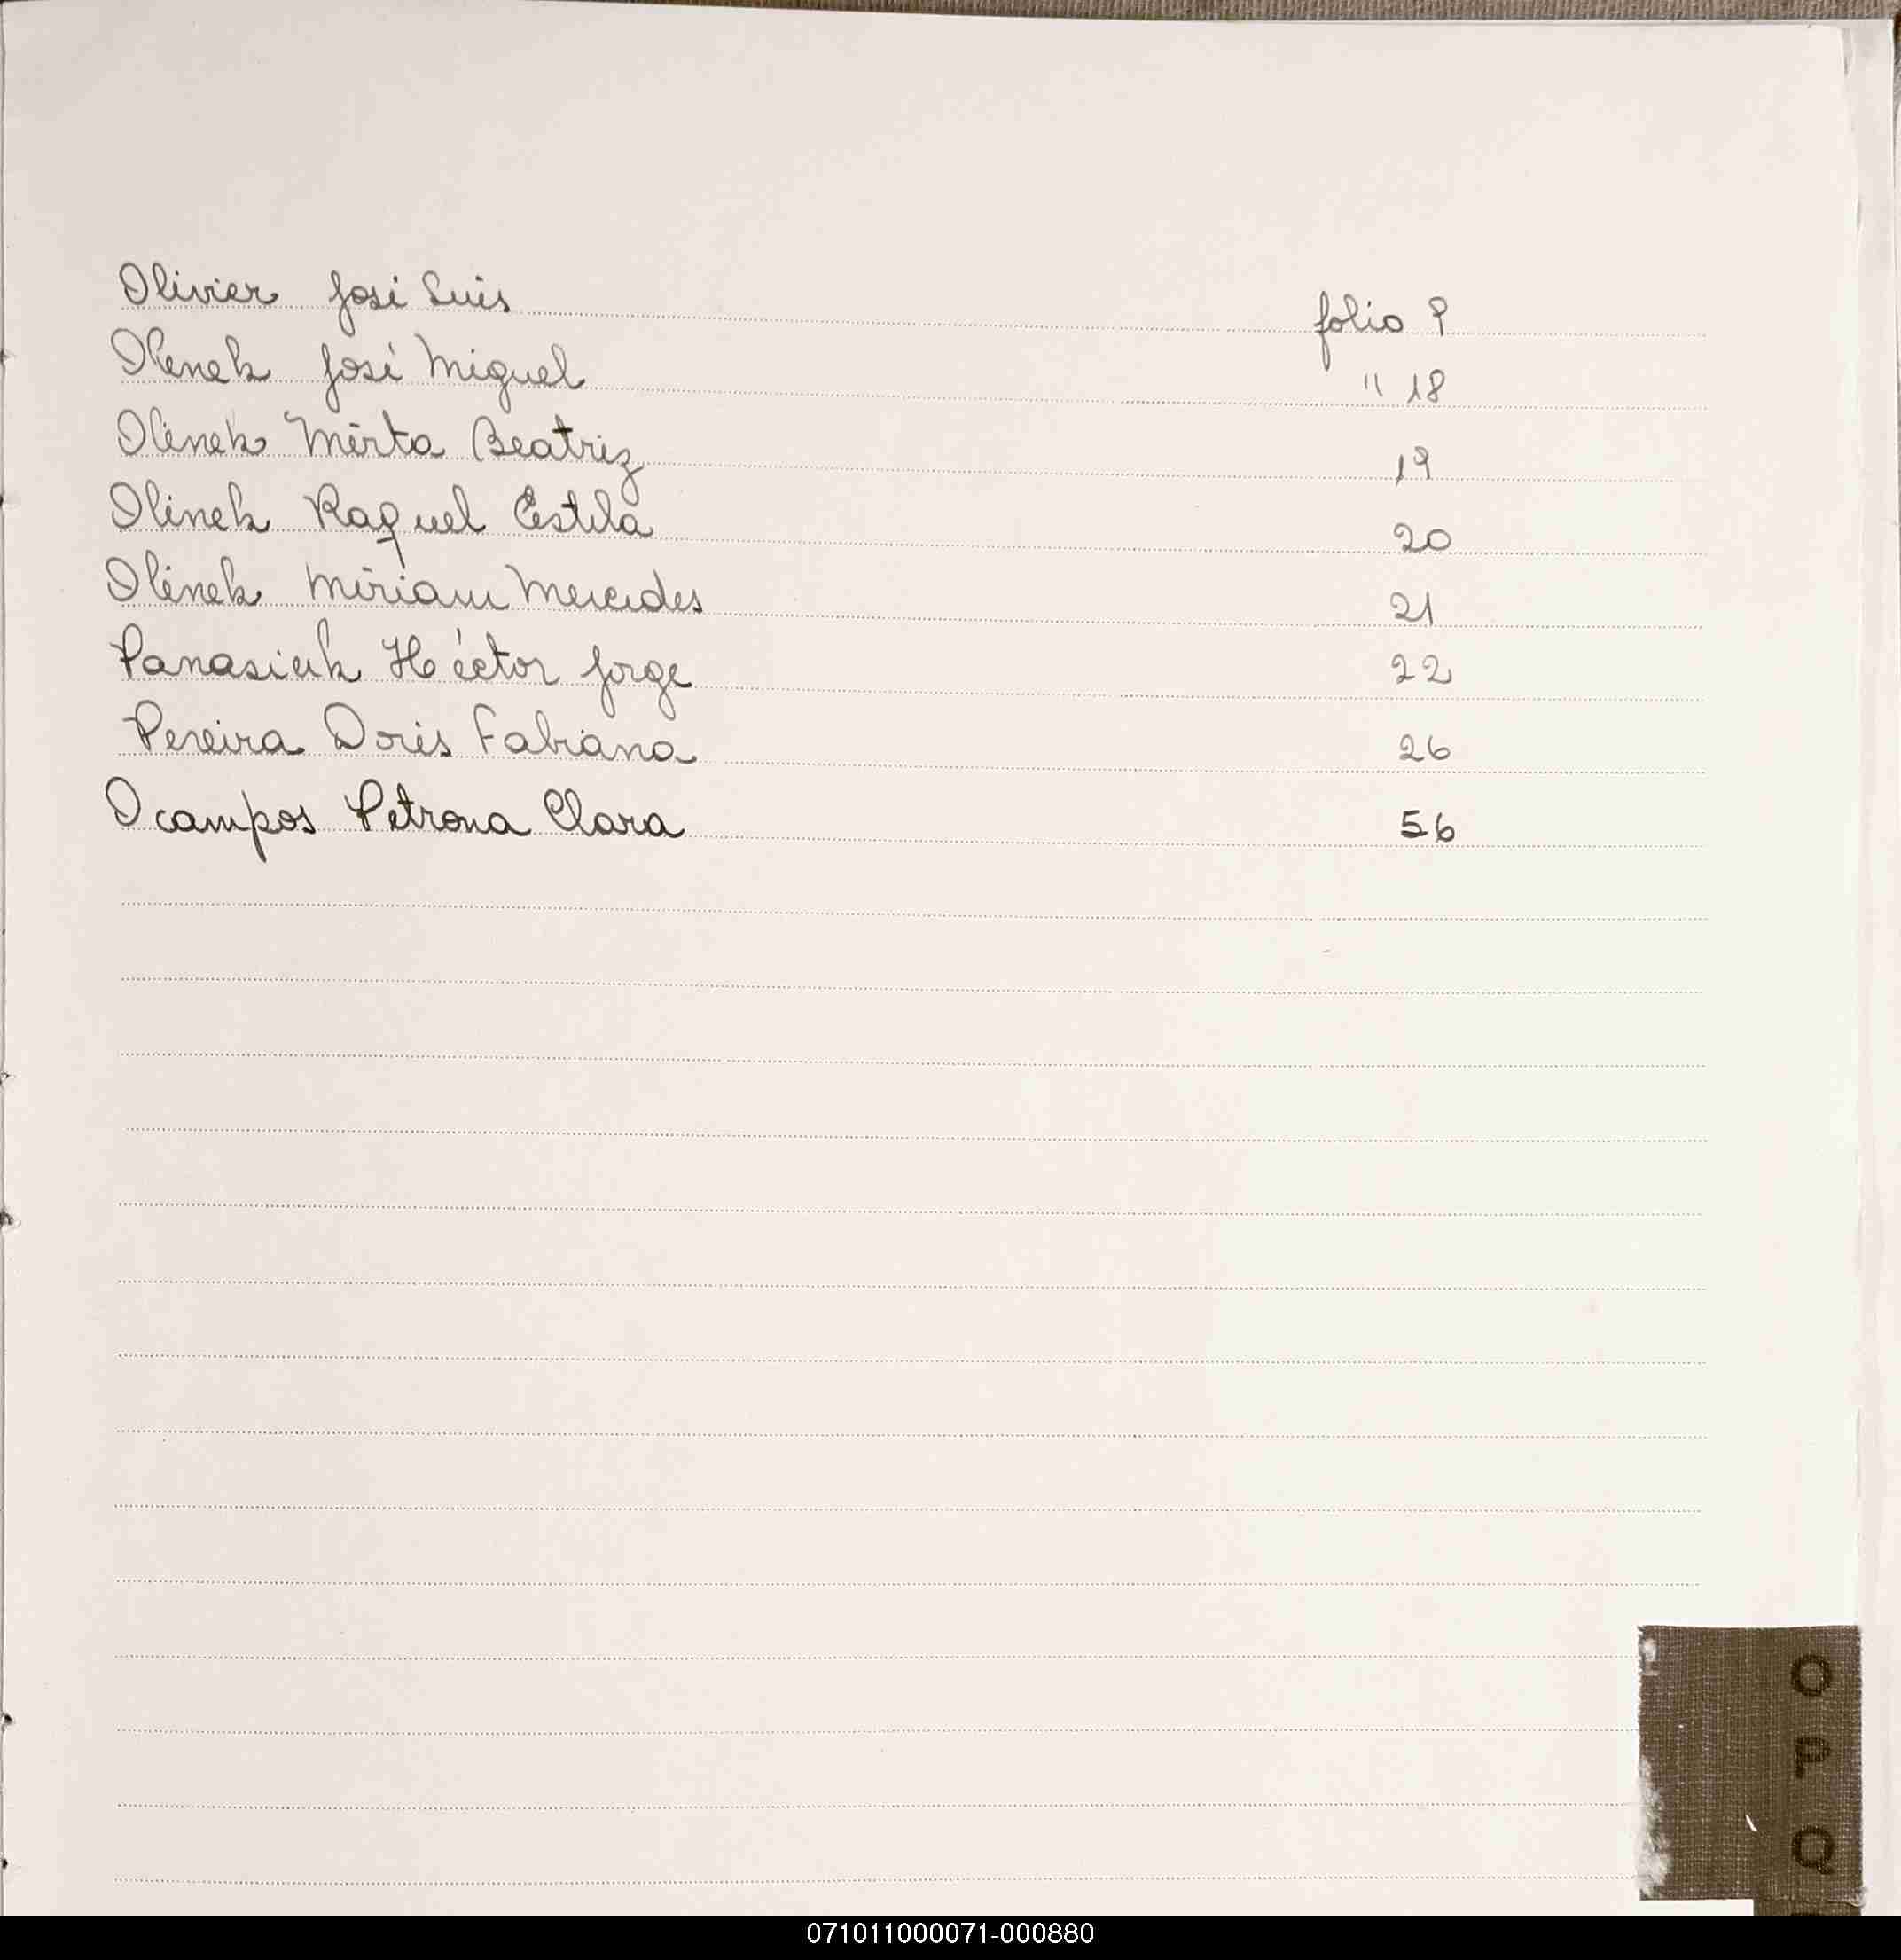 Olivier José Luis folio 9
Olenek José Miguel " 18
Olenek Mirta Beatriz 19
Olenek Raquel Estela 20
Olenek Miriam Mercedes 21
Panasiuk Héctor Jorge 22
Pereira Doris Fabiana 26
Ocampos Petrona Clara 56
O
P
Q
071011000071-000880